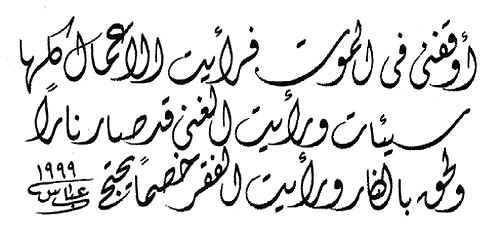 أوقفني في الموت فرأيت الأعمال كلها
سيئات ورأيت الغنى قد صار نارًا
ولحق بالنار ورأيت الفقر خصمًا يحتج
١٩٩٩